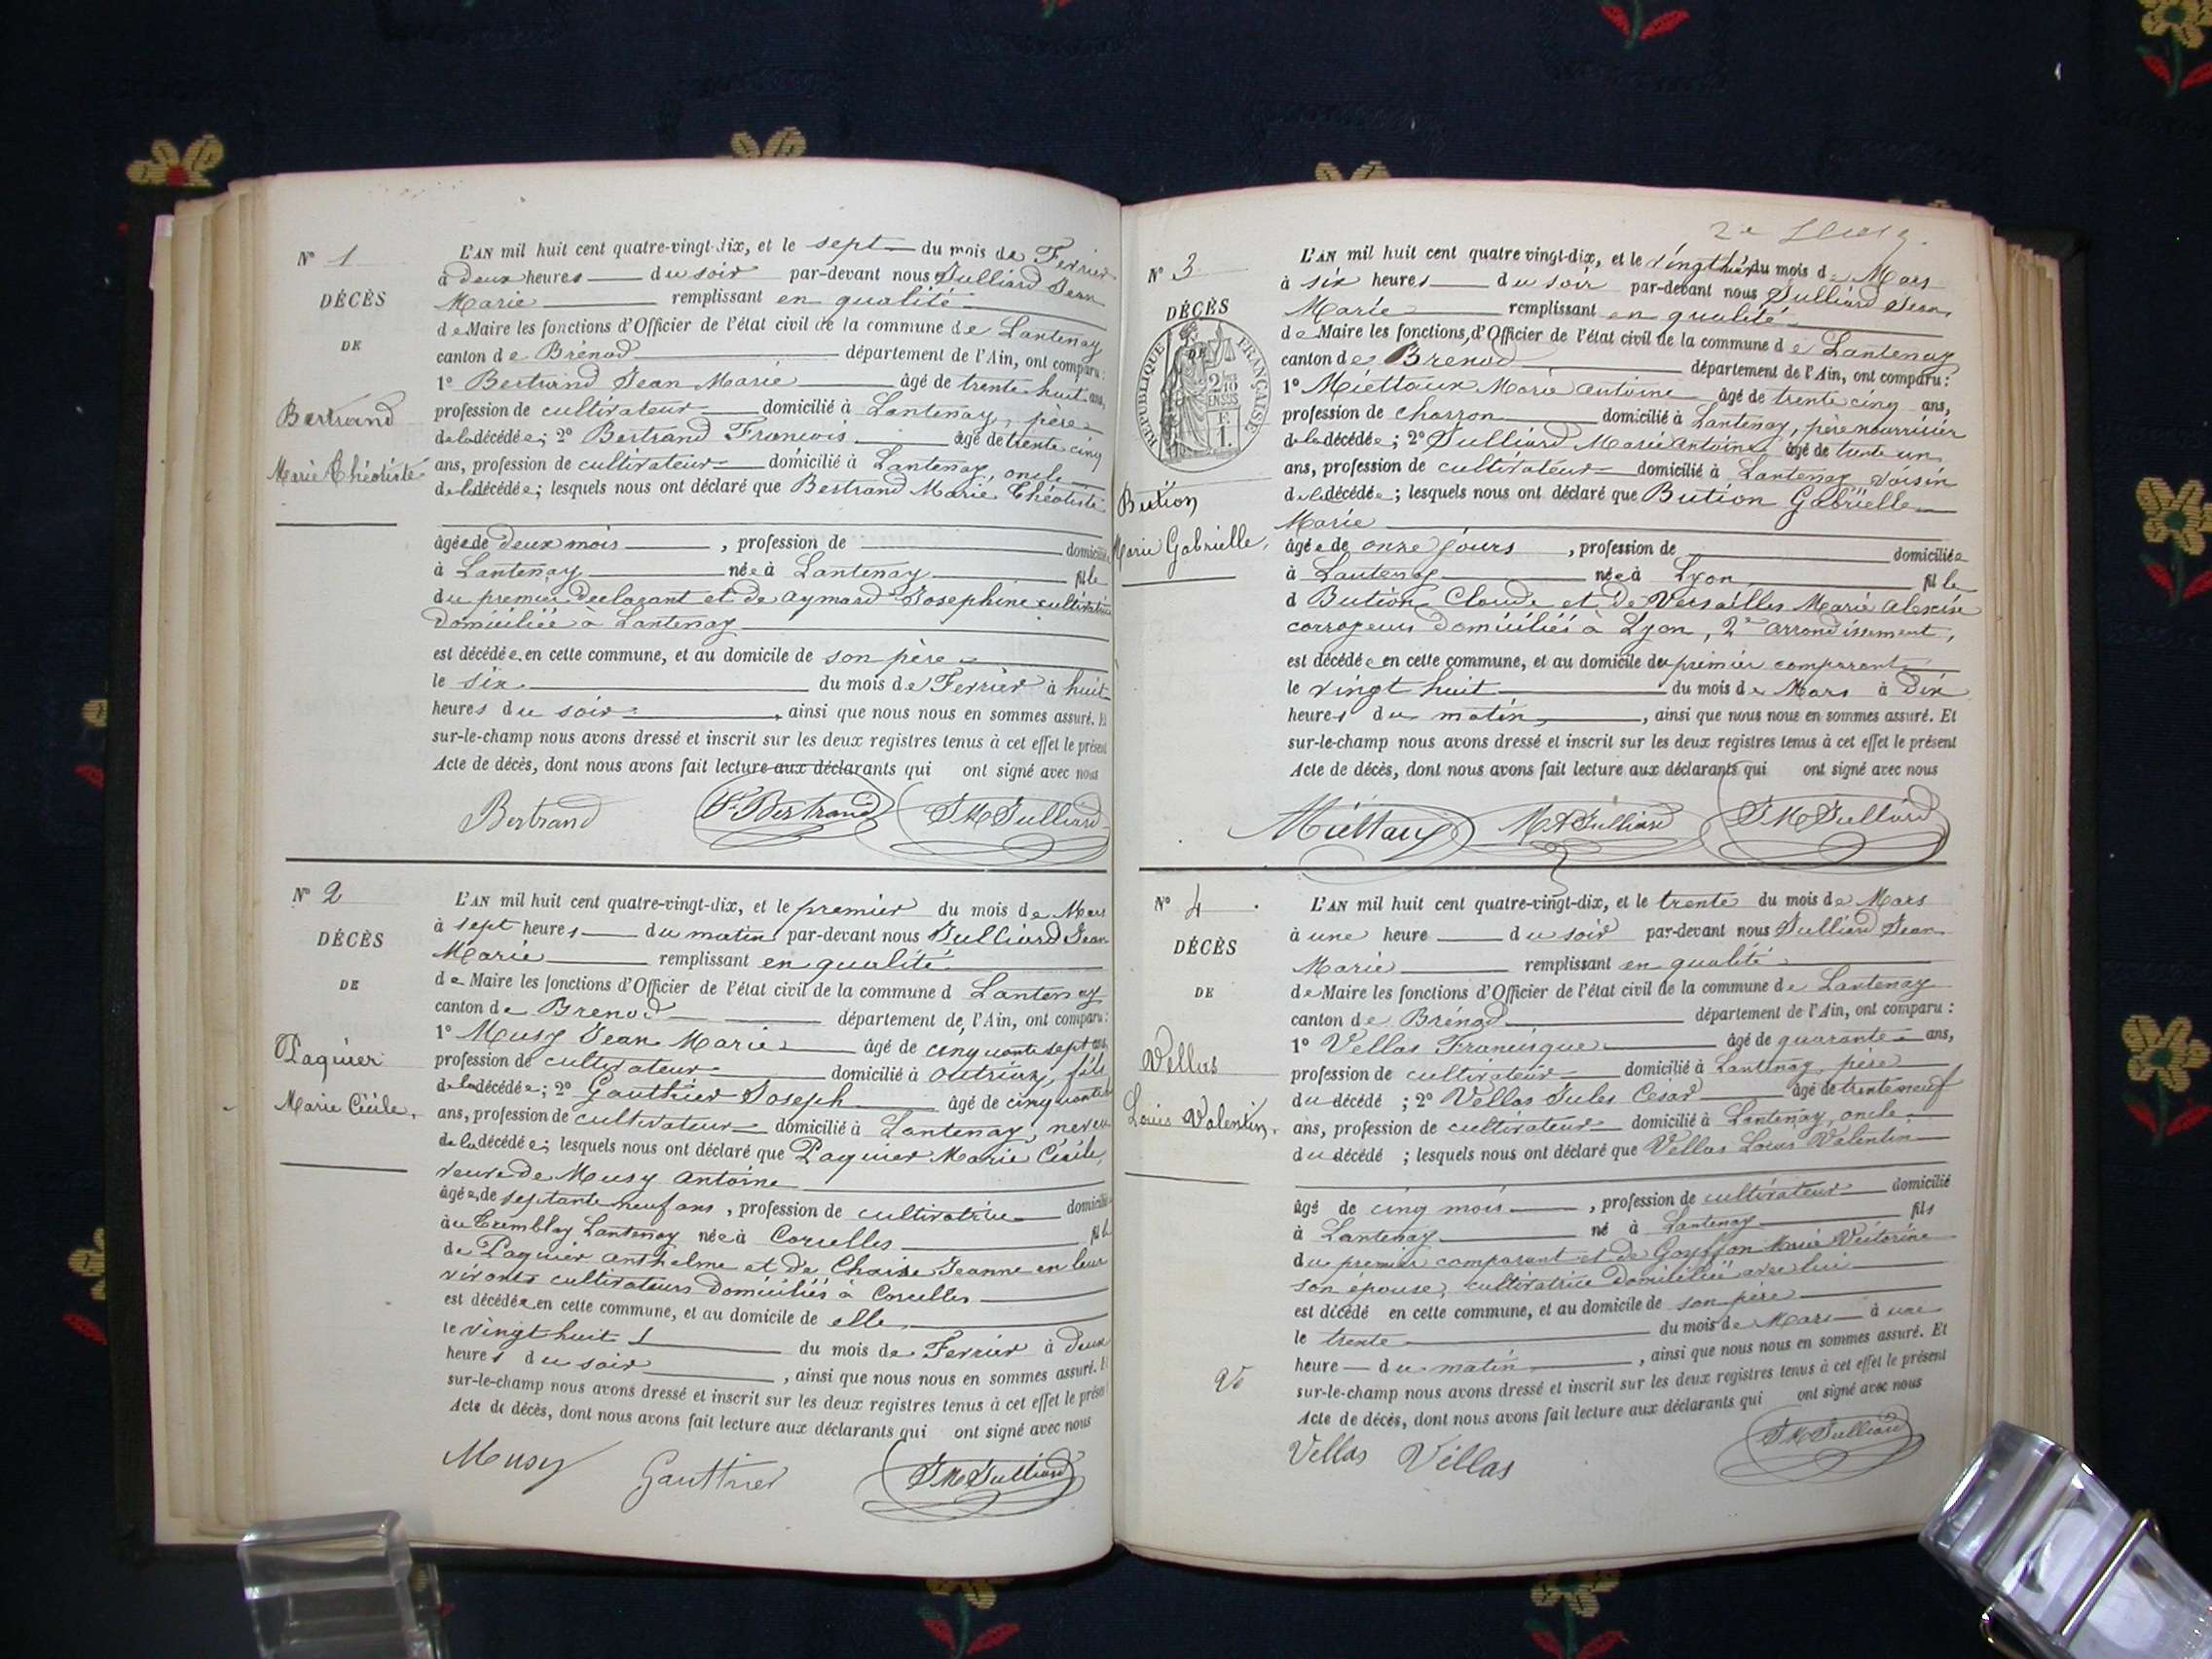 N° 1
DÉCÈS
DE
Bertrand
Marie Théotiste
L'AN mil huit cent quatre-vingt-dix, et le sept du mois de Fevrier
à deux heures du soir par-devant nous Julliard Jean
Marie remplissant en qualité
de Maire les fonctions d'Officier de l'état civil de la commune de Lantenay
canton de Brénod département de l'Ain, ont comparu :
1° Bertrand Jean Marie âgé de trente huit ans,
profession de cultivateur domicilié à Lantenay, père
de la décédée ; 2° Bertrand Francois âgé de trente cinq
ans, profession de cultivateur domicilié à Lantenay, oncle
de la décédée ; lesquels nous ont déclaré que Bertrand Marie Théotiste
âgée de deux mois , profession de domiciliée
à Lantenay née à Lantenay fille
du premier declarant et de Aymard Josephine cultivatrice
domiciliée à Lantenay
est décédée en cette commune, et au domicile de son père
le six du mois de Fevrier à huit
heures du soir , ainsi que nous nous en sommes assuré. Et
sur-le-champ nous avons dressé et inscrit sur les deux registres tenus à cet effet le présent
Acte de décès, dont nous avons fait lecture aux déclarants qui ont signé avec nous
Bertrand F. Bertrand J M Julliard
N° 2
DÉCÈS
DE
Paquier
Marie Cécile.
L'AN mil huit cent quatre-vingt-dix, et le premier du mois de Mars
à sept heures du matin par-devant nous Julliard Jean
Marie remplissant en qualité
de Maire les fonctions d'Officier de l'état civil de la commune d Lantenay
canton de Brenod département de l'Ain, ont comparu :
1° Musy Jean Marie âgé de cinquante sept ans,
profession de cultivateur domicilié à Outriaz, fils
de la décédée ; 2° Gauthier Joseph âgé de cinquante
ans, profession de cultivateur domicilié à Lantenay, neveu
de la décédée ; lesquels nous ont déclaré que Paquier Marie Cécile,
veuve de Musy Antoine
âgée de septante neuf ans , profession de cultivatrice domiciliée
au Tremblay Lantenay née à Corcelles fille
de Paquier Anthelme et de Chaise Jeanne en leur
vivant cultivateurs domiciliés à Corcelles
est décédée en cette commune, et au domicile de elle
le vingt huit du mois de Fevrier à deux
heures du soir , ainsi que nous nous en sommes assuré. Et
sur-le-champ nous avons dressé et inscrit sur les deux registres tenus à cet effet le présent
Acte de décès, dont nous avons fait lecture aux déclarants qui ont signé avec nous
Musy Gauthier J M Julliard
N° 3
DÉCÈS
DE
RÉPUBLIQUE FRANÇAISE
Bution
Marie Gabrielle,
L'AN mil huit cent quatre vingt-dix, et le vingt huit du mois de Mars
à six heures du soir par-devant nous Julliard Jean
Marie remplissant en qualité
de Maire les fonctions d'Officier de l'état civil de la commune de Lantenay
canton de Brenod département de l'Ain, ont comparu :
1° Miettaux Marie Antoine âgé de trente cinq ans,
profession de charron domicilié à Lantenay, père nourricier
de la décédée ; 2° Julliard Marie Antoine âgé de trente un
ans, profession de cultivateur domicilié à Lantenay voisin
de la décédée ; lesquels nous ont déclaré que Bution Gabrielle
Marie
âgée de onze jours , profession de domiciliée
à Lantenay née à Lyon fille
d Bution Claude et de Versailles Marie Alexise
corroyeurs domiciliés à Lyon, 2e arrondissement,
est décédée en cette commune, et au domicile du premier comparant
le vingt huit du mois de Mars à dix
heures du matin , ainsi que nous nous en sommes assuré. Et
sur-le-champ nous avons dressé et inscrit sur les deux registres tenus à cet effet le présent
Acte de décès, dont nous avons fait lecture aux déclarants qui ont signé avec nous
Miettaux M A Julliard J M Julliard
N° 4
DÉCÈS
DE
Vellas
Louis Valentin.
L'AN mil huit cent quatre-vingt-dix, et le trente du mois de Mars
à une heure du soir par-devant nous Julliard Jean
Marie remplissant en qualité
de Maire les fonctions d'Officier de l'état civil de la commune de Lantenay
canton de Brénod département de l'Ain, ont comparu :
1° Vellas Francisque âgé de quarante ans,
profession de cultivateur domicilié à Lantenay, père
du décédé ; 2° Vellas Jules César âgé de trente neuf
ans, profession de cultivateur domicilié à Lantenay, oncle
du décédé ; lesquels nous ont déclaré que Vellas Louis Valentin
âgé de cinq mois , profession de cultivateur domicilié
à Lantenay né à Lantenay fils
du premier comparant et de Goyffon Marie Victorine
son épouse, cultivatrice domiciliée avec lui
est décédé en cette commune, et au domicile de son père
le trente du mois de Mars à une
heure du matin , ainsi que nous nous en sommes assuré. Et
sur-le-champ nous avons dressé et inscrit sur les deux registres tenus à cet effet le présent
Acte de décès, dont nous avons fait lecture aux déclarants qui ont signé avec nous
Vellas Vellas J M Julliard